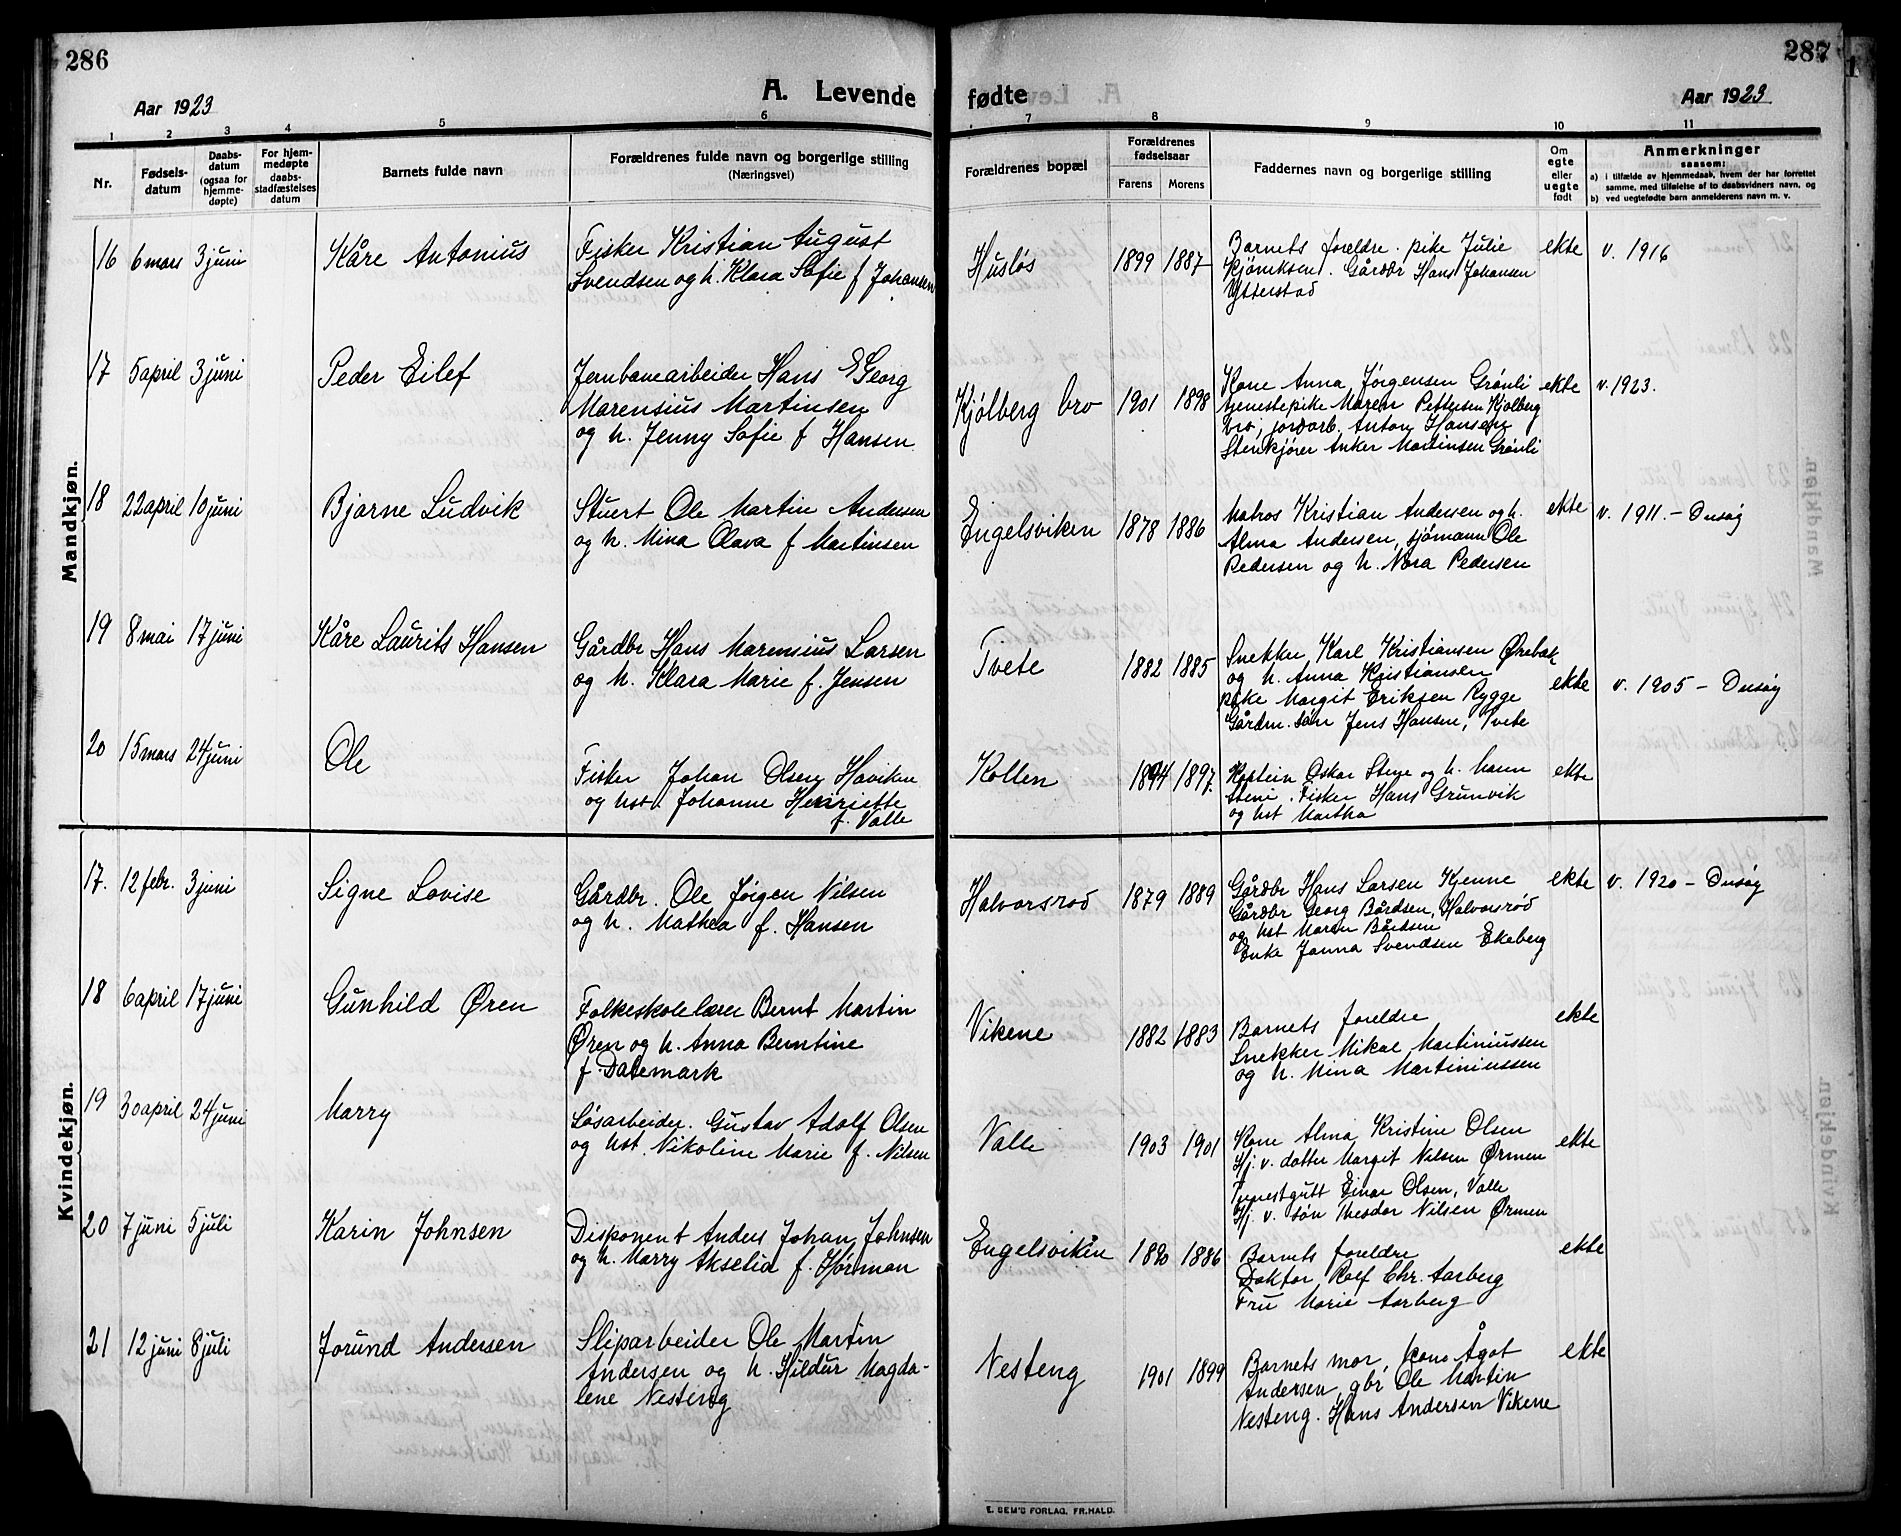 286
Aar 1923
A. Levende
1 2 3 4 5 6
Nr.
Fødsels-
datum
Daabs-
datum
(ogsaa for
hjemme-
døpte)
For hjem-
medøpte
daabs-
stadfæstelses
datum
Barnets fulde navn
Forældrenes fulde navn og borgerlige stilling
(Næringsvei)
Mandkjøn.
16 6 mars 3 juni Kåre Antonius
Fisker Kristian August
Svendsen og h. Klara Sofie f Johansen
17 5 april 3 juni Peder Eilef
Jernbanearbeider Hans Georg
Marensius Martinsen
og h. Jenny Sofie f Hansen
18 22 april 10 juni Bjarne Ludvik
Stuert Ole Martin Andersen
og h. Mina Olava f Martinsen
19 8 mai 17 juni Kåre Laurits Hansen
Gårdbr Hans Marensius Larsen
og h. Klara Marie f. Jensen
20 15 mars 24 juni Ole
Fisker Johan Olsen Haviken
og hst. Johanne Henriette
f. Valle
Kvindekjøn.
17. 12 febr. 3 juni Signe Lovise
Gårdbr. Ole Jørgen Nilsen
og h. Mathea f. Hansen
18 6 april 17 juni Gunhild Øren
Folkeskolelærer Bernt Martin
Øren og h. Anna Berntine
f. Dalemark
19 30 april 24 juni Marry
Løsarbeider. Gustav Adolf Olsen
og hst. Nikoline Marie f. Nilsen
20 7 juni 5 juli Karin Johnsen
Disponent Anders Johan Johnsen
og h. Marry Akselia f. Hørman
21 12 juni 8 juli Jorund Andersen
Sliparbeider Ole Martin
Andersen og h. Hildur Magda-
lene Nesteng
287
fødte
Aar 1923
7 8 9 10 11
Forældrenes bopæl
Forældrenes
fødselsaar
Farens Morens
Faddernes navn og borgerlige stilling
Om
egte
eller
uegte
født
Anmerkninger
saasom:
a) i tilfælde av hjemmedaab, hvem der har forrettet
samme, med tilføielse af to daabsvidners navn, og
b) ved uegtefødte barn anmelderens navn m. v.
Husløs 1899 1887
Barnets foreldre. pike Julie
Kjøniksen. Gårdbr Hans Johansen
Ytterstad
ekte v. 1916
Kjølberg bro 1901 1898
Kone Anna Jørgensen Grønli
tjenestepike Maren Pettersen Kjølberg
bro, jordarb. Anton Hansen
Stenkjører Anker Martinsen Grønli
ekte v. 1923.
Engelsviken 1878 1886
Matros Kristian Andersen og h.
Alma Andersen, sjømann Ole
Pedersen og h. Nora Pedersen
ekte v. 1911. - Onsøy
Tvete 1882 1885
Snekker Karl Kristiansen Ørebæk
og h. Anna Kristiansen
pike Margit Eriksen Rygge
Gårdm. søn Jens Hansen, Tvete
ekte v. 1905 - Onsøy
Kollen 1894 1897.
Kaptein Oskar Stene og h. hann
Stene. Fisker Hans Grunvik
og hst Martha
ekte
Halvorsrød 1879 1889
Gårdbr Hans Larsen Kjenne
Gårdbr Georg Bårdsen, Halvorsrød
og hst Maren Bårdsen
Enke Janna Svendsen Ekeberg
ekte v. 1920 - Onsøy
Vikene 1882 1883
Barnets foreldre
Snekker Mikal Martiniussen
og h. Mina Martiniussen
ekte
Valle 1903 1901
Kone Alma Kristine Olsen
Hj. v. datter Margit Nilsen Ørmen
Tjenestgutt Einar Olsen, Valle
Hj. v. søn Theodor Nilsen Ørmen
ekte
Engelsviken 1880 1886
Barnets foreldre
Doktor Rolf Chr. Aarberg
Fru Marie Aarberg
ekte
Nesteng 1901 1899
Barnets mor, kone Ågot
Andersen, gbr Ole Martin
Nesteng. Hans Andersen Vikene
ekte
E. SEM'S FORLAG, FR.HALD.